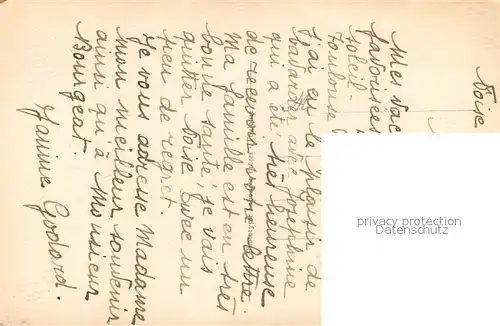 Noise
Mes vac
favorisées
soleil -
Toulouse
j'ai eu le plaisir de
bavarder avec Joséphine
qui a été très heureuse
de recevoir votre lettre.
Ma famille est en très
bonne santé ; je vais
quitter Noise avec un
rien de regret.
Je vous adresse Madame
mon meilleur souvenir
ainsi qu'à Monsieur
Bourgeat.
Janine Godard.
privacy protection
AK Ansichtskarten